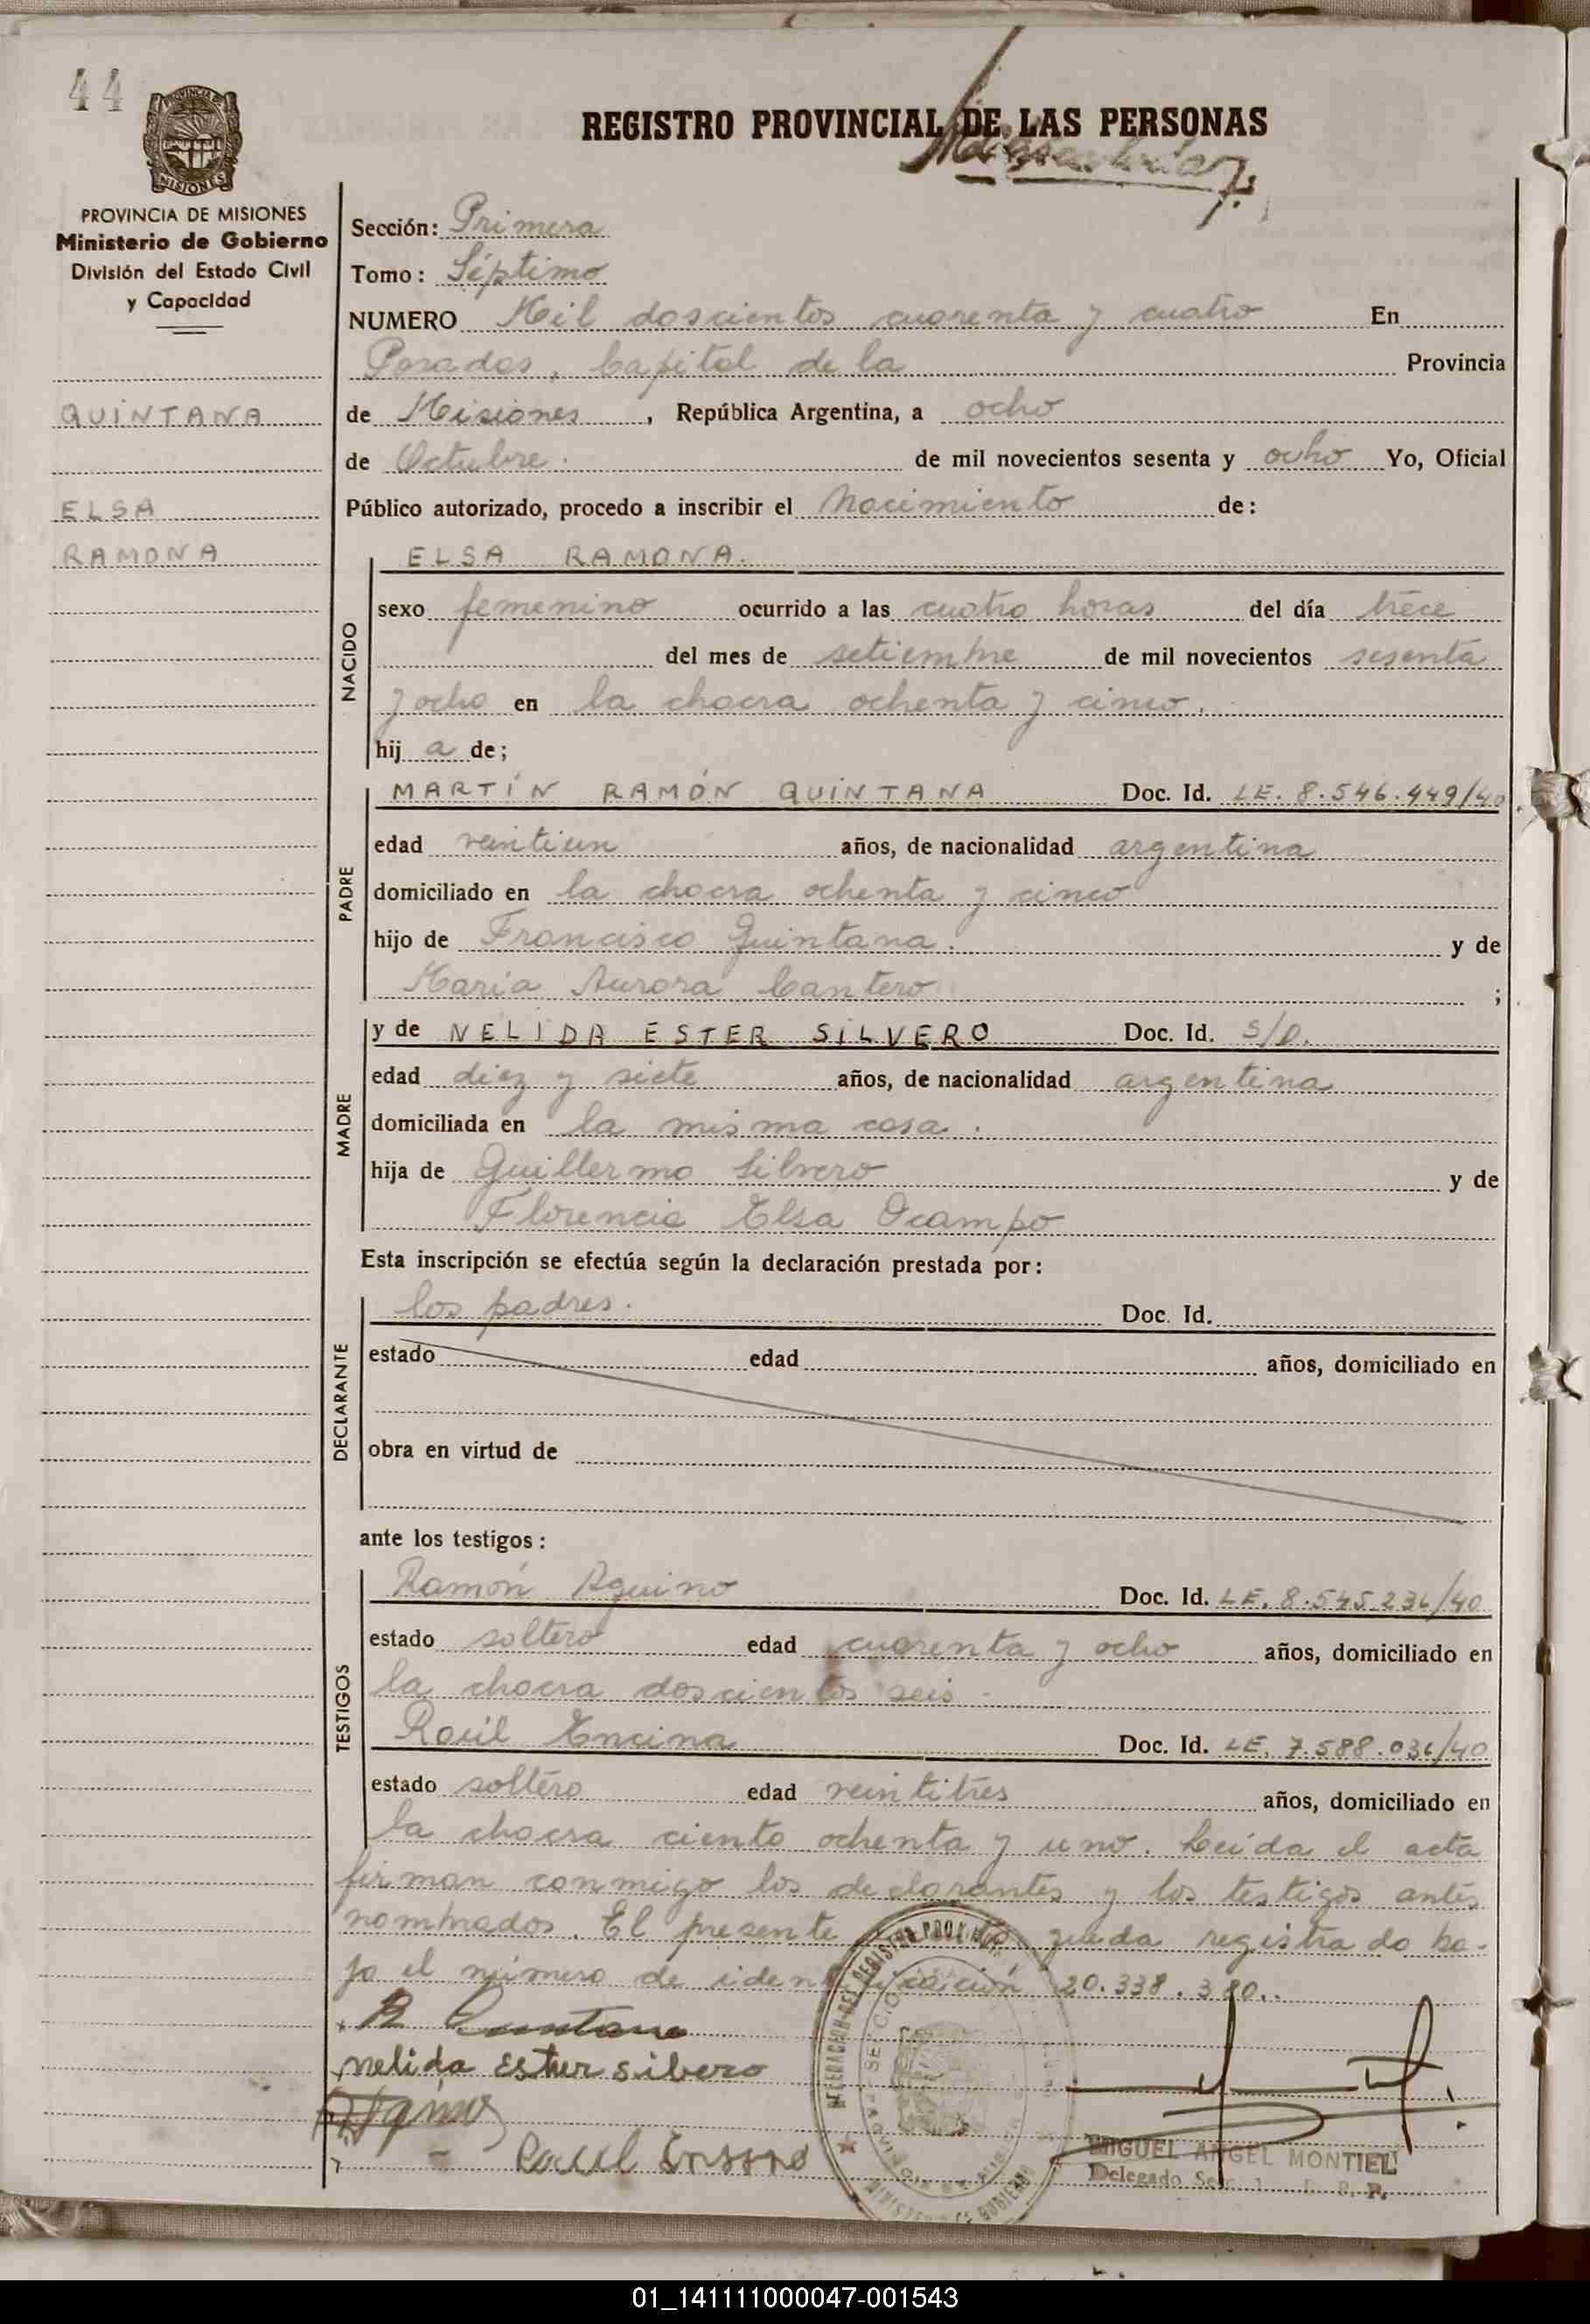 44
REGISTRO PROVINCIAL DE LAS PERSONAS
PROVINCIA DE
MISIONES
PROVINCIA DE MISIONES
Ministerio de Gobierno
División del Estado Civil
y Capacidad
QUINTANA
ELSA
RAMONA
Sección: Primera
Tomo: Séptimo
NUMERO Mil doscientos cuarenta y cuatro En
Posadas, Capital de la Provincia
de Misiones, República Argentina, a ocho
de Octubre. de mil novecientos sesenta y ocho Yo, Oficial
Público autorizado, procedo a inscribir el Nacimiento de:
NACIDO
ELSA RAMONA.
sexo femenino ocurrido a las cuatro horas del día trece
del mes de setiembre de mil novecientos sesenta
y ocho en la chacra ochenta y cinco.
hij a de;
PADRE
MARTÍN RAMÓN QUINTANA Doc. Id. LE. 8.546.449/40
edad veintiun años, de nacionalidad argentina
domiciliado en la chacra ochenta y cinco
hijo de Francisco Quintana. y de
María Aurora Cantero ;
MADRE
y de NELIDA ESTER SILVERO Doc. Id. S/D.
edad diez y siete años, de nacionalidad argentina
domiciliada en la misma casa.
hija de Guillermo Silvero y de
Florencia Elsa Ocampo
Esta inscripción se efectúa según la declaración prestada por:
DECLARANTE
los padres. Doc. Id.
estado edad años, domiciliado en
obra en virtud de
ante los testigos:
TESTIGOS
Ramón Aquino Doc. Id. LE. 8.545.236/40
estado soltero edad cuarenta y ocho años, domiciliado en
la chacra doscientos seis -
Raúl Encina Doc. Id. LE. 7.588.036/40
estado soltero edad veintitres años, domiciliado en
la chacra ciento ochenta y uno. Leída el acta
firman conmigo los declarantes y los testigos antes
nombrados. El presente queda registrado ba-
jo el número de identificación 20.338.380..
R Quintana
nelida Ester silbero
Raul
MIGUEL ANGEL MONTIEL
Delegado Sec. 1
01_141111000047-001543